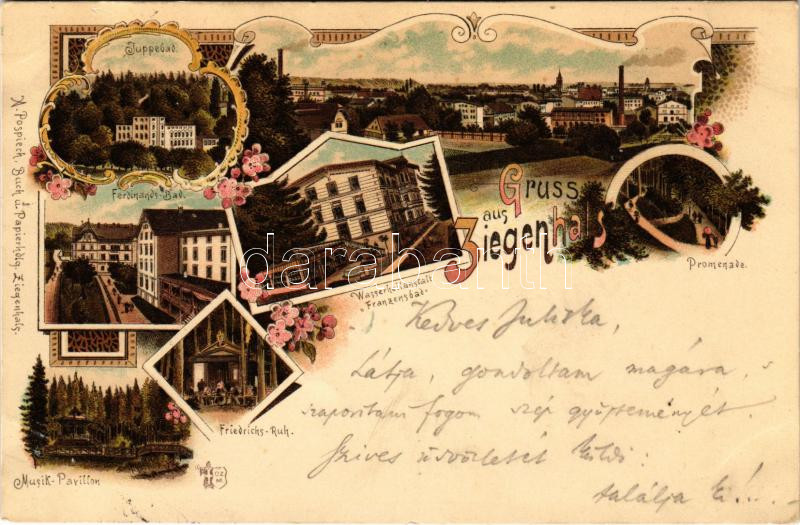 Juppebad.
A. Pospiech, Buch u. Papierhdlg. Ziegenhals.
Ferdinands-Bad.
Gruss
aus
Ziegenhals
Promenade.
Wasserheilanstalt
"Franzensbad"
darabanth
Kedves Juliska,
Látja, gondoltam magára,
szaporítani fogom szép gyűjteményét.
Szives üdvözletét küldi:
találja ki!...
Friedrichs-Ruh.
Musik-Pavillon